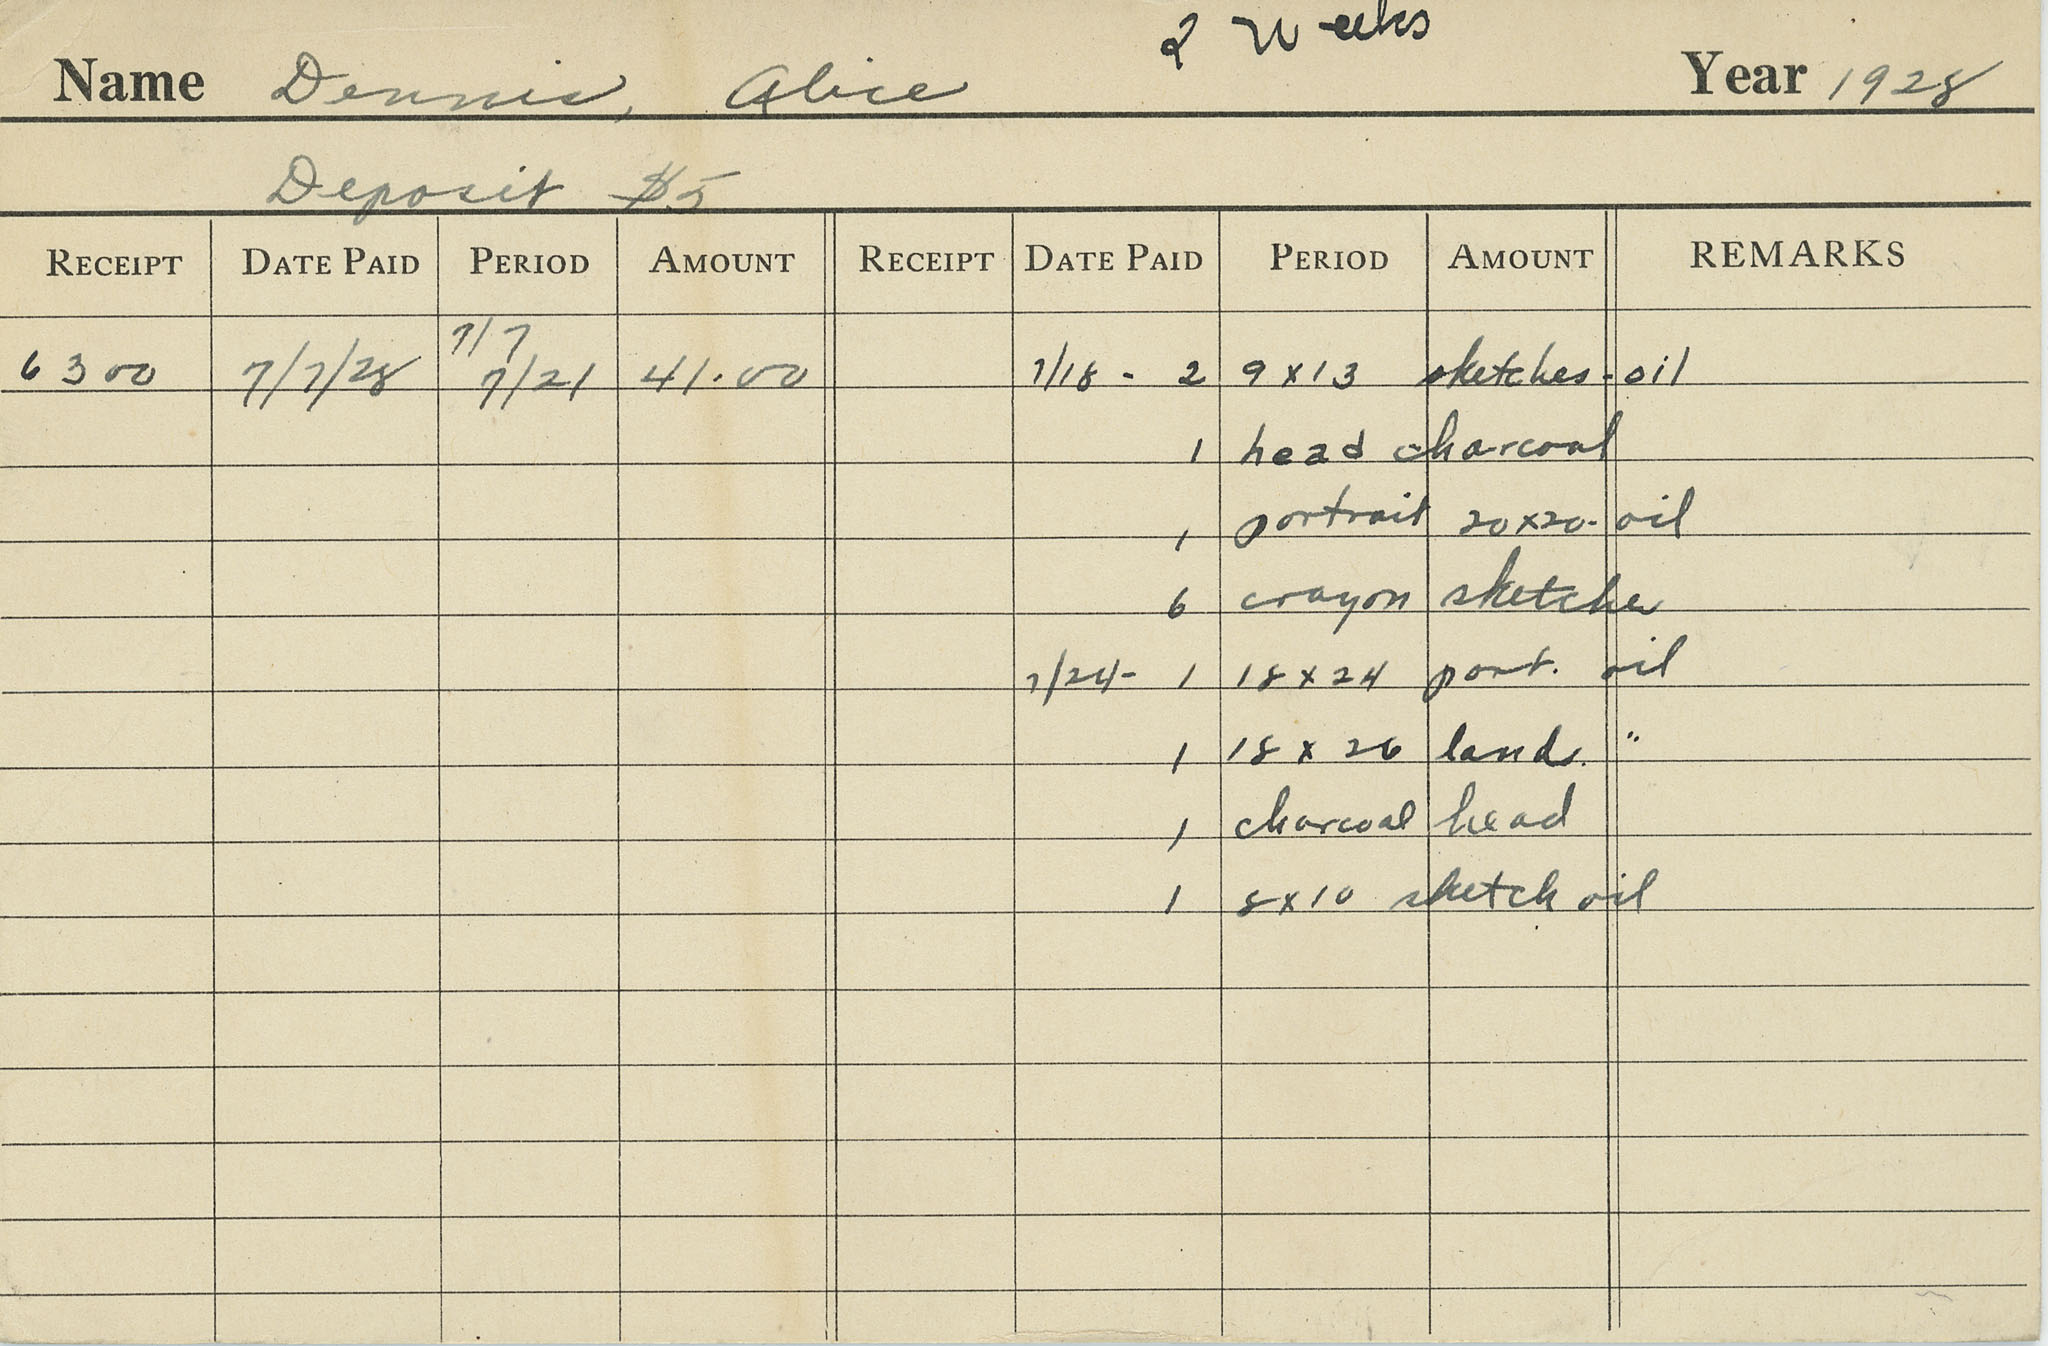 2 Weeks
Name Dennis, Alice Year 1928
Deposit $5
RECEIPT DATE PAID PERIOD AMOUNT RECEIPT DATE PAID PERIOD AMOUNT REMARKS
7/7
6300 7/7/28 7/21 41.00 7/18 - 2 9 x 13 sketches - oil
1 head charcoal
1 portrait 20x20 - oil
6 crayon sketches
7/24 - 1 18 x 24 port. oil
1 18 x 26 land. "
1 charcoal head
1 8x10 sketch oil